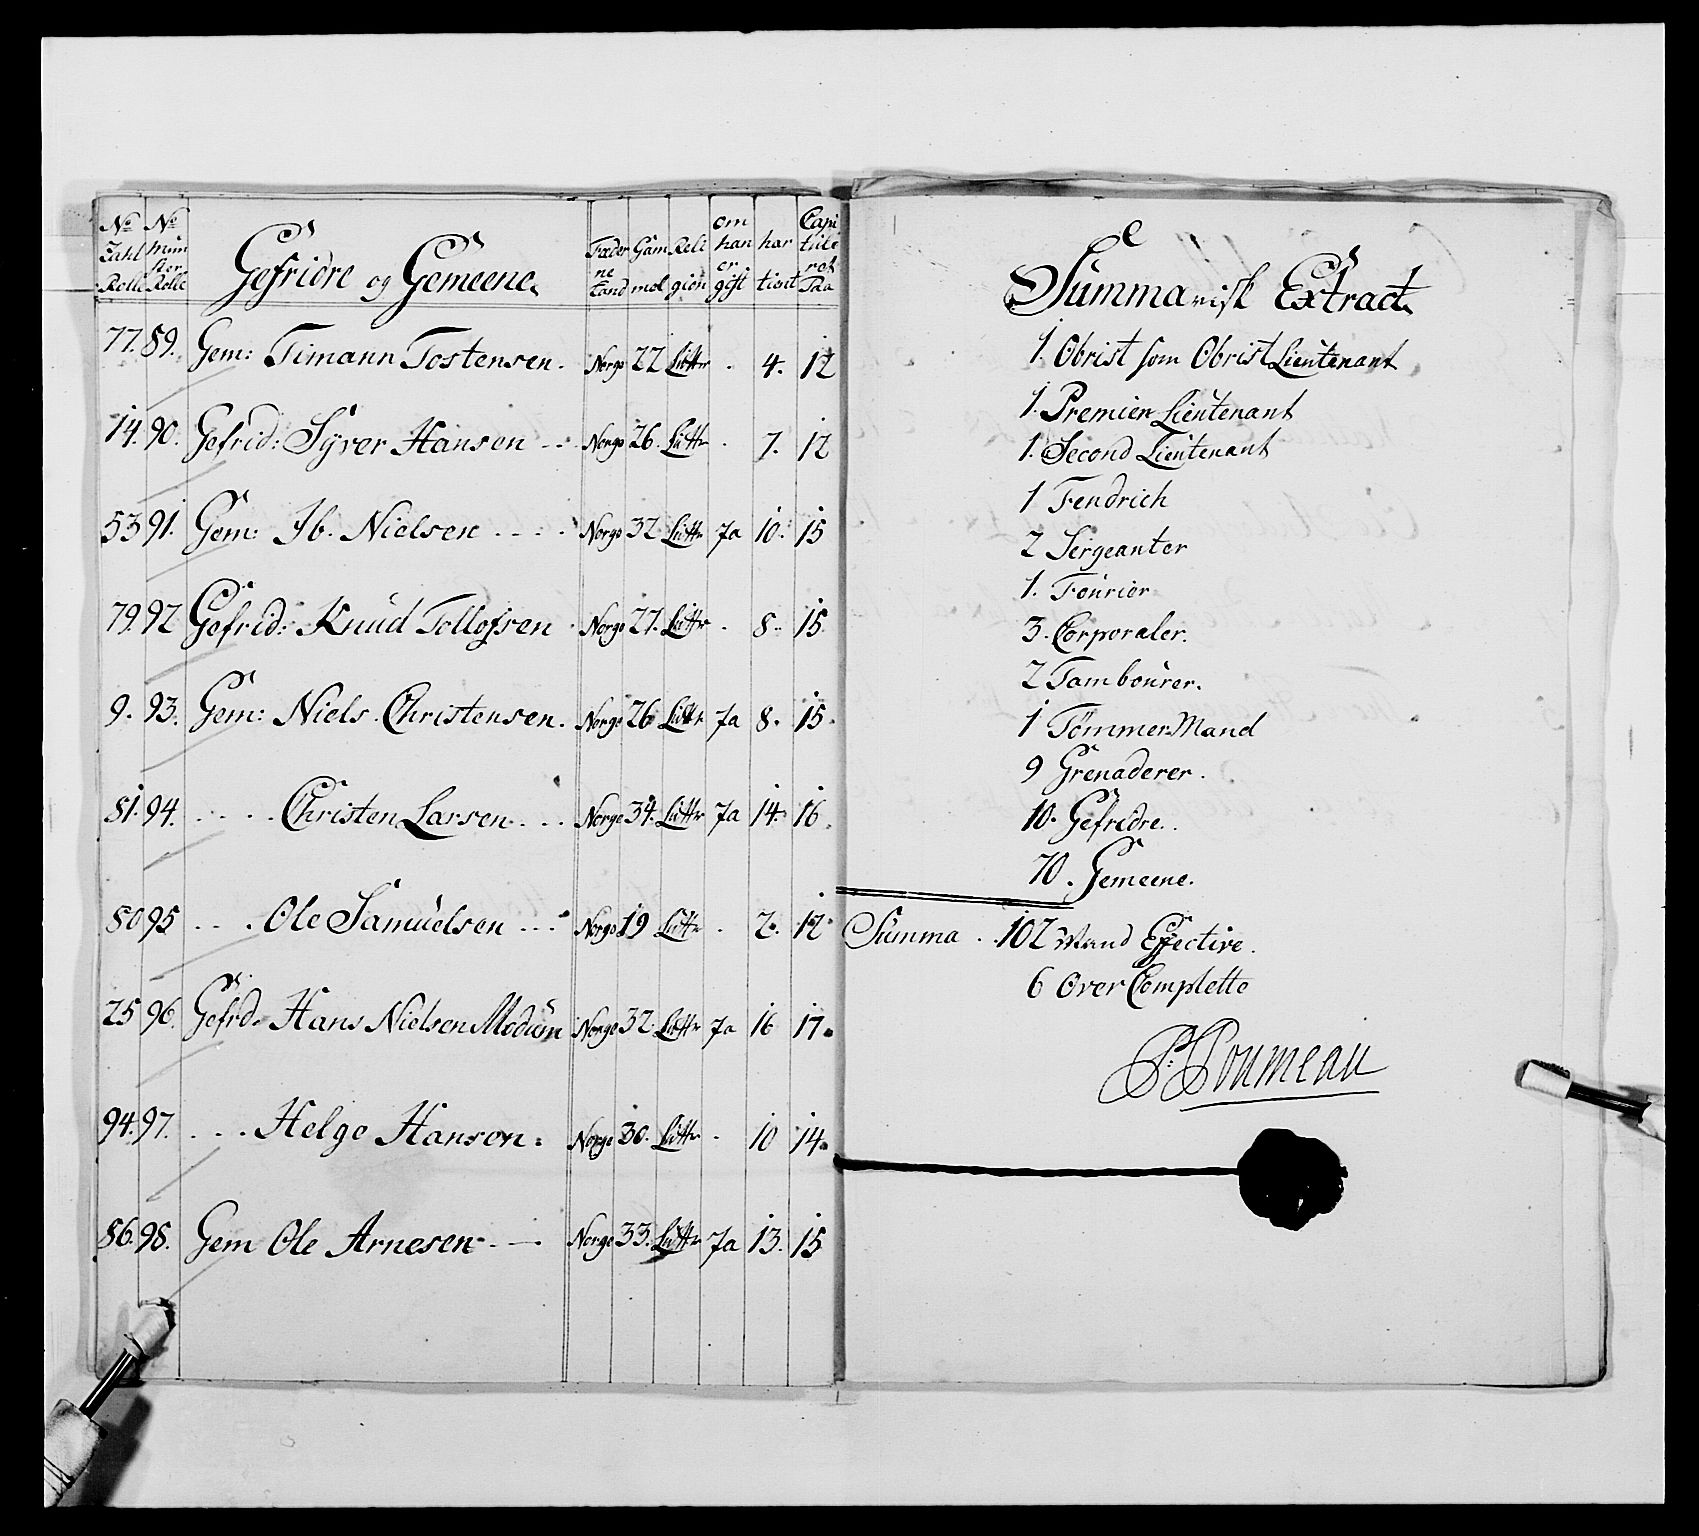 No Zahl Rolle No Mün ster Rolle Gefridre og Gemeene. Fæder ne Land Gam mel Reli gion om han er gift har tient Capi tule ret Paa
77. 89. Gem: Timann Tostensen. Norge 22 Lutter . 4. 12
14. 90. Gefrid: Syver Hansen Norge 26. Lutter . 7. 12
53 91. Gem: Ib. Nielsen Norge 32 Lutter Ja 10. 15
79. 92 Gefrid: Knud Tollofsen Norge 27. Lutter . 8. 15
9. 93. Gem: Niels Christensen. Norge 26 Lutter Ja 8. 15.
81. 94. Christen Larsen Norge 34. Lutter Ja 14. 16.
80 95 Ole Samuelsen Norge 19 Lutter . 2. 12
25 96. Gefrd. Hans Nielsen Modum Norge 32 Lutter Ja 16 17.
94. 97. Helge Hansen. Norge 30. Lutter . 10 14.
86. 98. Gem Ole Arnesen Norge 33. Lutter Ja 13. 15
Summarisk Extract
1. Obrist som Obrist Lieutenant
1. Premier Lieutenant
1. Second Lieutenant
1 Fendrich
2 Sergeanter
1. Fourier
3. Corporaler.
2 Tambourer.
1 Tømmer Mand
9 Grenaderer.
10. Gefredre.
70. Gemeene.
Summa . 102 Mand Effective.
6 Over Complette
P: Poumeau